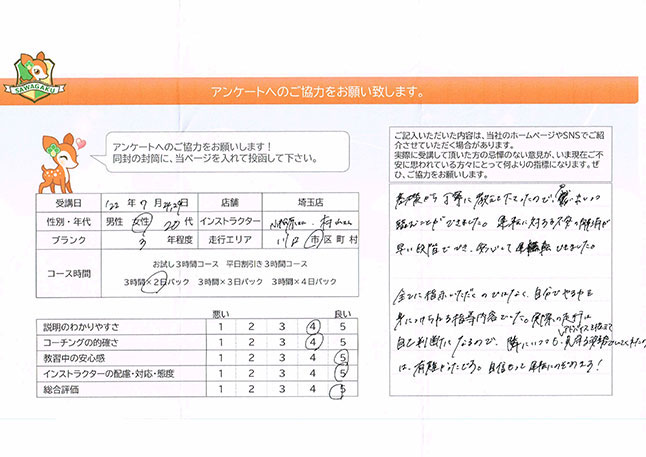 SAWAGAKU
アンケートへのご協力をお願い致します。
アンケートへのご協力をお願いします！
同封の封筒に、当ページを入れて投函して下さい。
受講日 '22 年 7 月 日 店舗 埼玉店
性別・年代 男性 女性 20 代 インストラクター
ブランク 3 年程度 走行エリア 川口 市 区 町 村
コース時間
お試し3時間コース 平日割引き3時間コース
3時間×2日パック 3時間×3日パック 3時間×4日パック
悪い 良い
説明のわかりやすさ 1 2 3 4 5
コーチングの的確さ 1 2 3 4 5
教習中の安心感 1 2 3 4 5
インストラクターの配慮・対応・態度 1 2 3 4 5
総合評価 1 2 3 4 5
ご記入いただいた内容は、当社のホームページやSNSでご紹
介させていただく場合があります。
実際に受講して頂いた方の忌憚のない意見が、いま現在ご不
安に思われている方々にとって何よりの指標になります。ぜ
ひ、ご協力をお願いします。
基礎から丁寧に教えて下さったので、
臨むことができました。運転に対する不安の解消が
早い段階ででき、安心して運転できました。
全て指示いただくのではなく、自分でやる力を
身につけられる指導内容でした。実際の走行は
自己判断になるので、隣にいつつも、
は、有難かったです。自信もって運転にのぞめます！